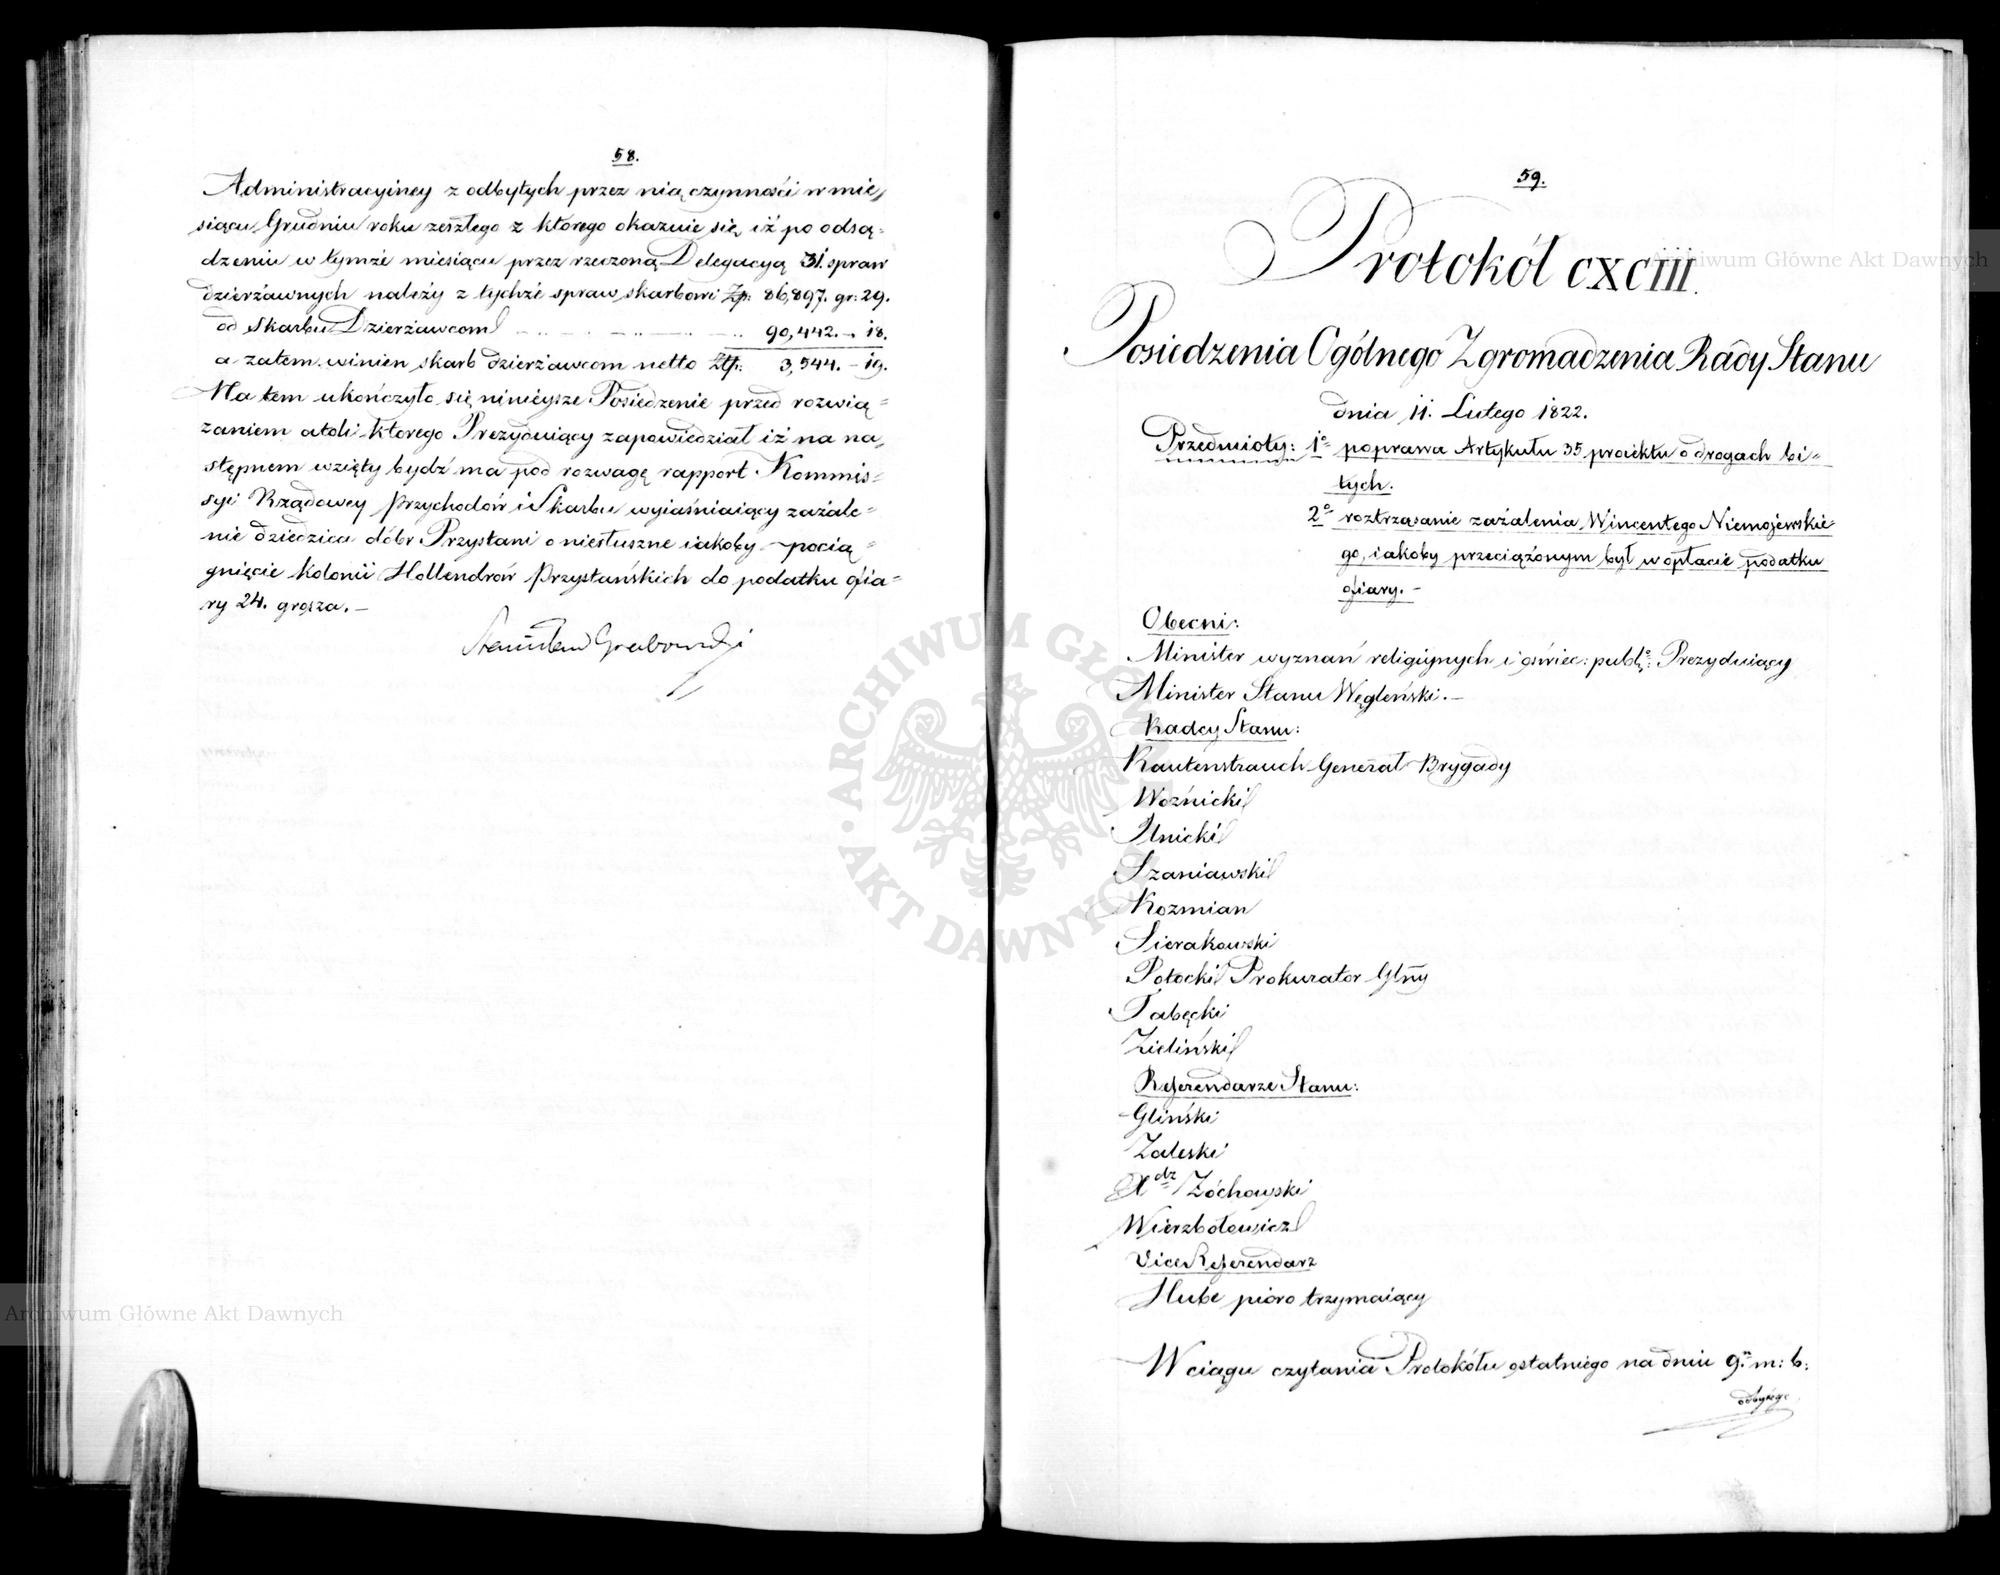 58.
Administracyiney z odbytych przez nią czynności w mie,
siącu Grudniu roku zeszłego z ktorego okazuie się, iż po odsą=
dzeniu w tymże miesiącu przez rzeczoną Delegacyą 31. spraw
dzierżawnych należy z tychże spraw skarbowi Zp: 86,897. gr: 29.
od Skarbu Dzierżawcom 90,442. – 18.
a zatem winien skarb dzierżawcom netto Złp: 3,544. – 19.
Na tem ukończyło się ninieysze Posiedzenie przed rozwią=
zaniem atoli ktorego Prezyduiący zapowiedział iż na na,
stępnem wzięty bydź ma pod rozwagę rapport Kommis=
syi Rządowey Przychodów i Skarbu wyiaśniaiący zażale=
nie dziedzica dóbr Przystani o niesłuszne iakoby pocią=
gnięcie kolonii Hollendrów Przystańskich do podatku ofia=
ry 24. grosza. –
Stanisław Grabowski
59.
Protokół CXCIII.
Posiedzenia Ogólnego Zgromadzenia Rady Stanu
dnia 11. Lutego 1822.
Przedmioty: 1o poprawa Artykułu 35 proiektu o drogach bi=
tych.
2o roztrząsanie zażalenia Wincentego Niemojewskie=
go, iakoby przeciążonym był w opłacie podatku
ofiary. –
Obecni:
Minister wyznań religiynych i oświec: publ: Prezyduiący
Minister Stanu Węgleński. –
Radcy Stanu:
Rautenstrauch Generał Brygady
Woźnicki
Ilnicki
Szaniawski
Kozmian
Sierakowski
Potocki Prokurator Glny
Tabęcki
Zieliński
Referendarze Stanu:
Gliński
Zaleski
Xdz Zóchowski
Wierzbołowicz
Vice Referendarz
Hube pióro trzymaiący
W ciągu czytania Protokółu ostatniego na dniu 9n m: b:
odbytego
Archiwum Główne Akt Dawnych
ARCHIWUM GŁÓWNE AKT DAWNYCH
Archiwum Główne Akt Dawnych